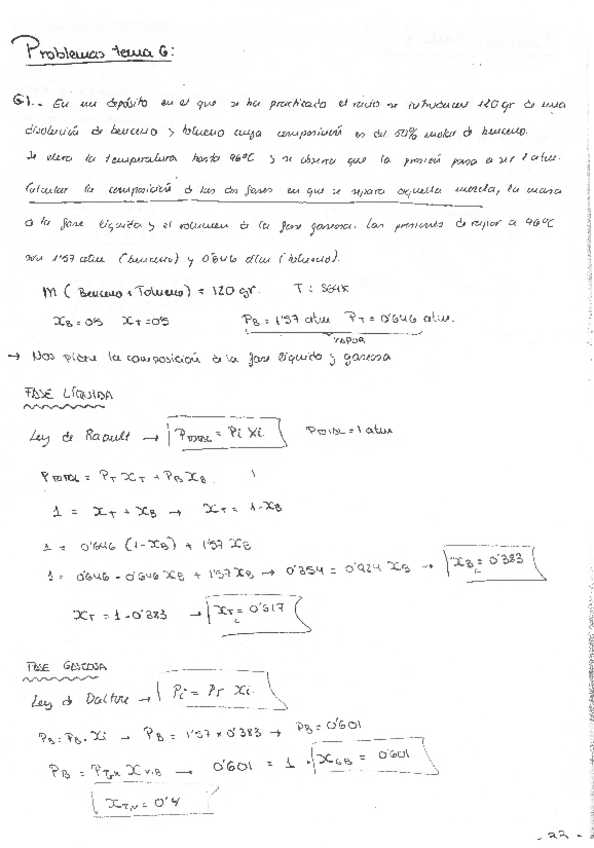 Problemas tema 6:
61.- En un depósito en el que se ha practicado el vacio se introducen 120 gr de una
disolución de benceno y tolueno cuya composición es del 50% molar de benceno.
Se eleva la temperatura hasta 96ºC y se observa que la presión pasa a ser 1 atm.
Calcular la composición de las dos fases en que se separa aquella mezcla, la masa
de la fase líquida y el volumen de la fase gaseosa. Las presiones de vapor a 96ºC
son 1'57 atm (benceno) y 0'646 atm (tolueno).
m (Benceno + Tolueno) = 120 gr. T:
XB = 0'5 XT = 0'5 PB = 1'57 atm PT = 0'646 atm.
VAPOR
→ Nos piden la composición de la fase líquida y gaseosa
FASE LÍQUIDA
Ley de Raoult → PTOTAL = Pi Xi. PTOTAL = 1 atm
PTOTAL = PT XT + PB XB
1 = XT + XB → XT = 1 - XB
1 = 0'646 (1-XB) + 1'57 XB
1 = 0'646 - 0'646 XB + 1'57 XB → 0'354 = 0'924 XB → XBL = 0'383
XT = 1 - 0'383 → XTL = 0'617
FASE GASEOSA
Ley de Dalton → Pi = PT Xi.
PB = PB · Xi → PB = 1'57 x 0'383 → PB = 0'601
PB = PT x XV,B → 0'601 = 1 · XGB = 0'601
XT,V = 0'4
- 22 -